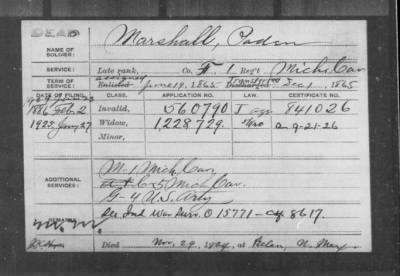 DEAD
NAME OF SOLDIER: Marshall, Paden
SERVICE: Late rank, Co. F, 1 Reg't Mich Cav
TERM OF SERVICE: Enlisted assigned June 19, 1865 Discharged Transferred Dec 1, 1865
DATE OF FILING. CLASS. APPLICATION NO. LAW. CERTIFICATE NO.
1886 Feb 2 Invalid, 560790 841026
1925 Jany 27 Widow, 1,228,729 a 9-21-26
Minor,
ADDITIONAL SERVICES: M-1 Mich Cav
C-5 Mich Cav.
G-4 U.S. Arty
REMARKS: See Ind War Surv. O 15771 - Ctf 8617.
Died Nov. 29, 1924, at Belen, N. Mex